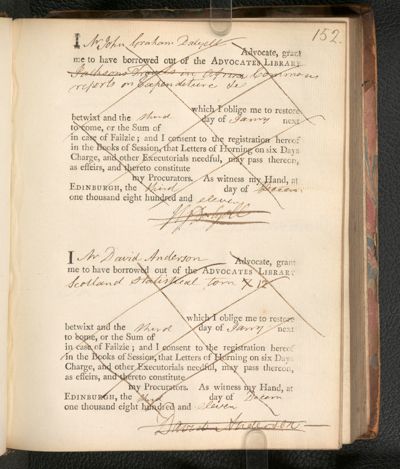 152.
I Mr John Graham Dalyell Advocate, grant
me to have borrowed out of the ADVOCATES LIBRARY
Jacksons Travels in Africa Commons
reports on Expenditure &c
which I oblige me to restore
betwixt and the third day of Janry next
to come, or the Sum of
in case of Failzie; and I consent to the registration hereof
in the Books of Session, that Letters of Horning on six Days
Charge, and other Executorials needful, may pass thereon,
as effeirs, and thereto constitute
my Procurators. As witness my Hand, at
EDINBURGH, the third day of Decem
one thousand eight hundred and eleven
J G Dalyell
I Mr David Anderson Advocate, grant
me to have borrowed out of the ADVOCATES LIBRARY
Scotland Statistical tom X 12
which I oblige me to restore
betwixt and the third day of Janry next
to come, or the Sum of
in case of Failzie; and I consent to the registration hereof
in the Books of Session, that Letters of Horning on six Days
Charge, and other Executorials needful, may pass thereon,
as effeirs, and thereto constitute
my Procurators. As witness my Hand, at
EDINBURGH, the third day of Decem
one thousand eight hundred and eleven
David Anderson